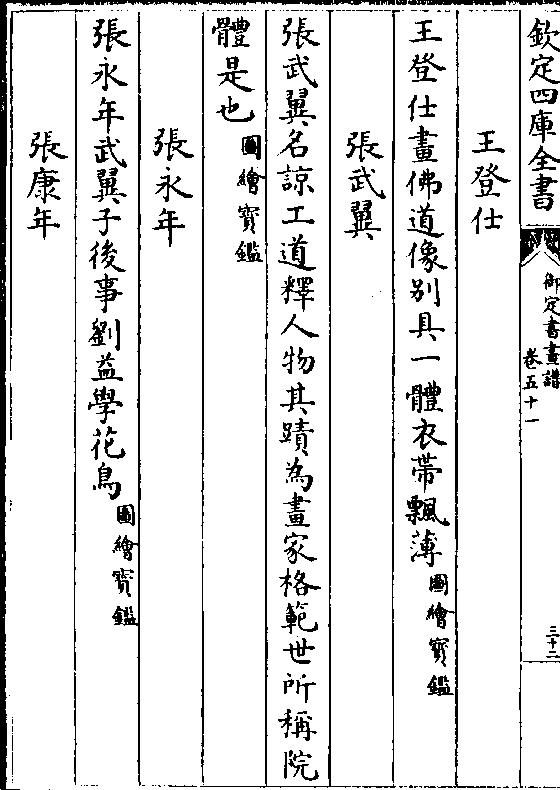 欽定四庫全書
御定書畫譜
卷五十一
三十二
王登仕
王登仕畫佛道像別具一體衣帶飄薄圖繪寳鑑
張武翼
張武翼名諒工道釋人物其蹟為畫家格範世所稱院
體是也圖繪寳鑑
張永年
張永年武翼子後事劉益學花鳥圖繪寳鑑
張康年